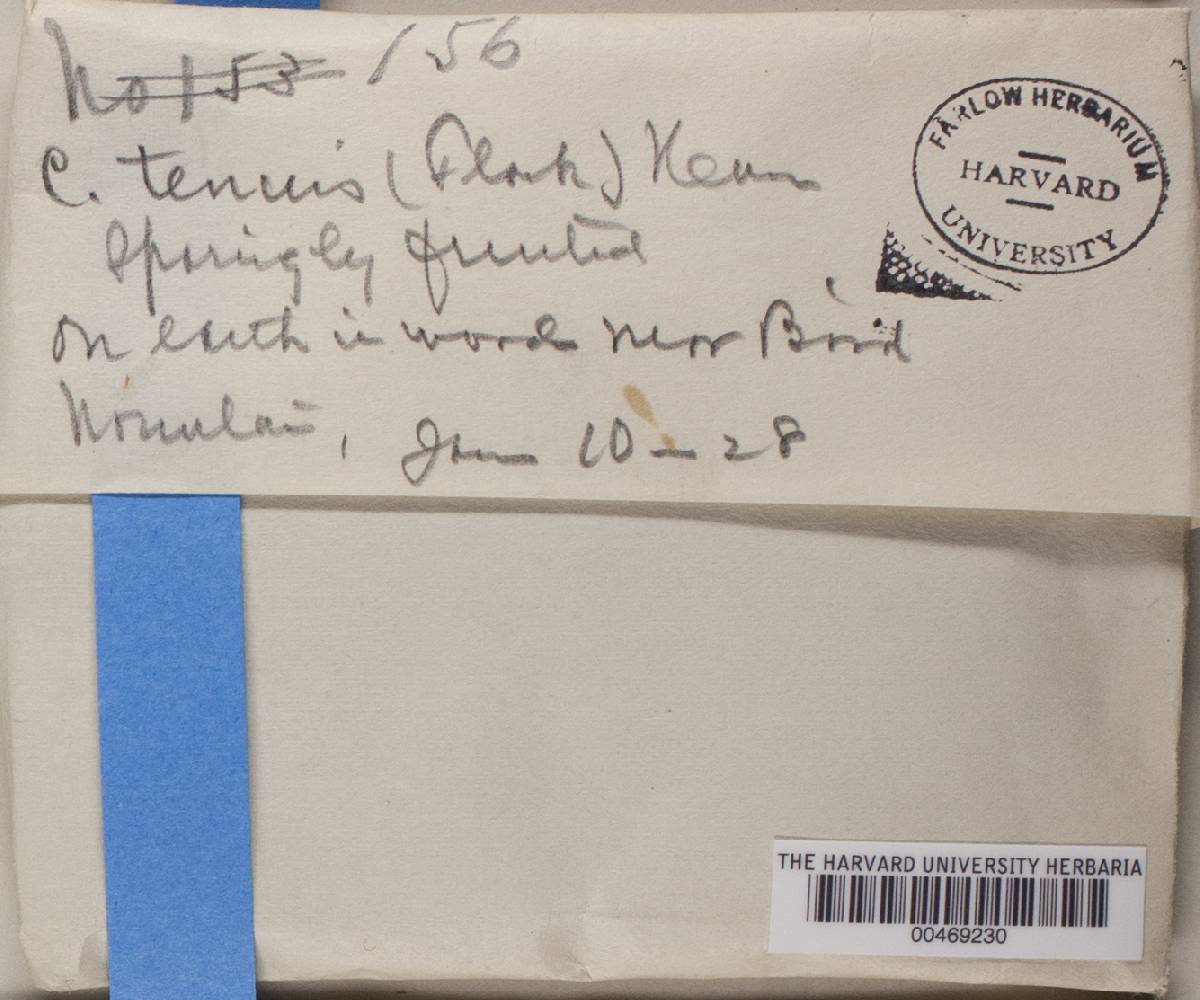 No 153 156
C. tenuis (Flörk) Hav
Sparingly fruited
On earth in woods near Bird
Mountain, Jan 10-28
FARLOW HERBARIUM
HARVARD
UNIVERSITY
THE HARVARD UNIVERSITY HERBARIA
00469230